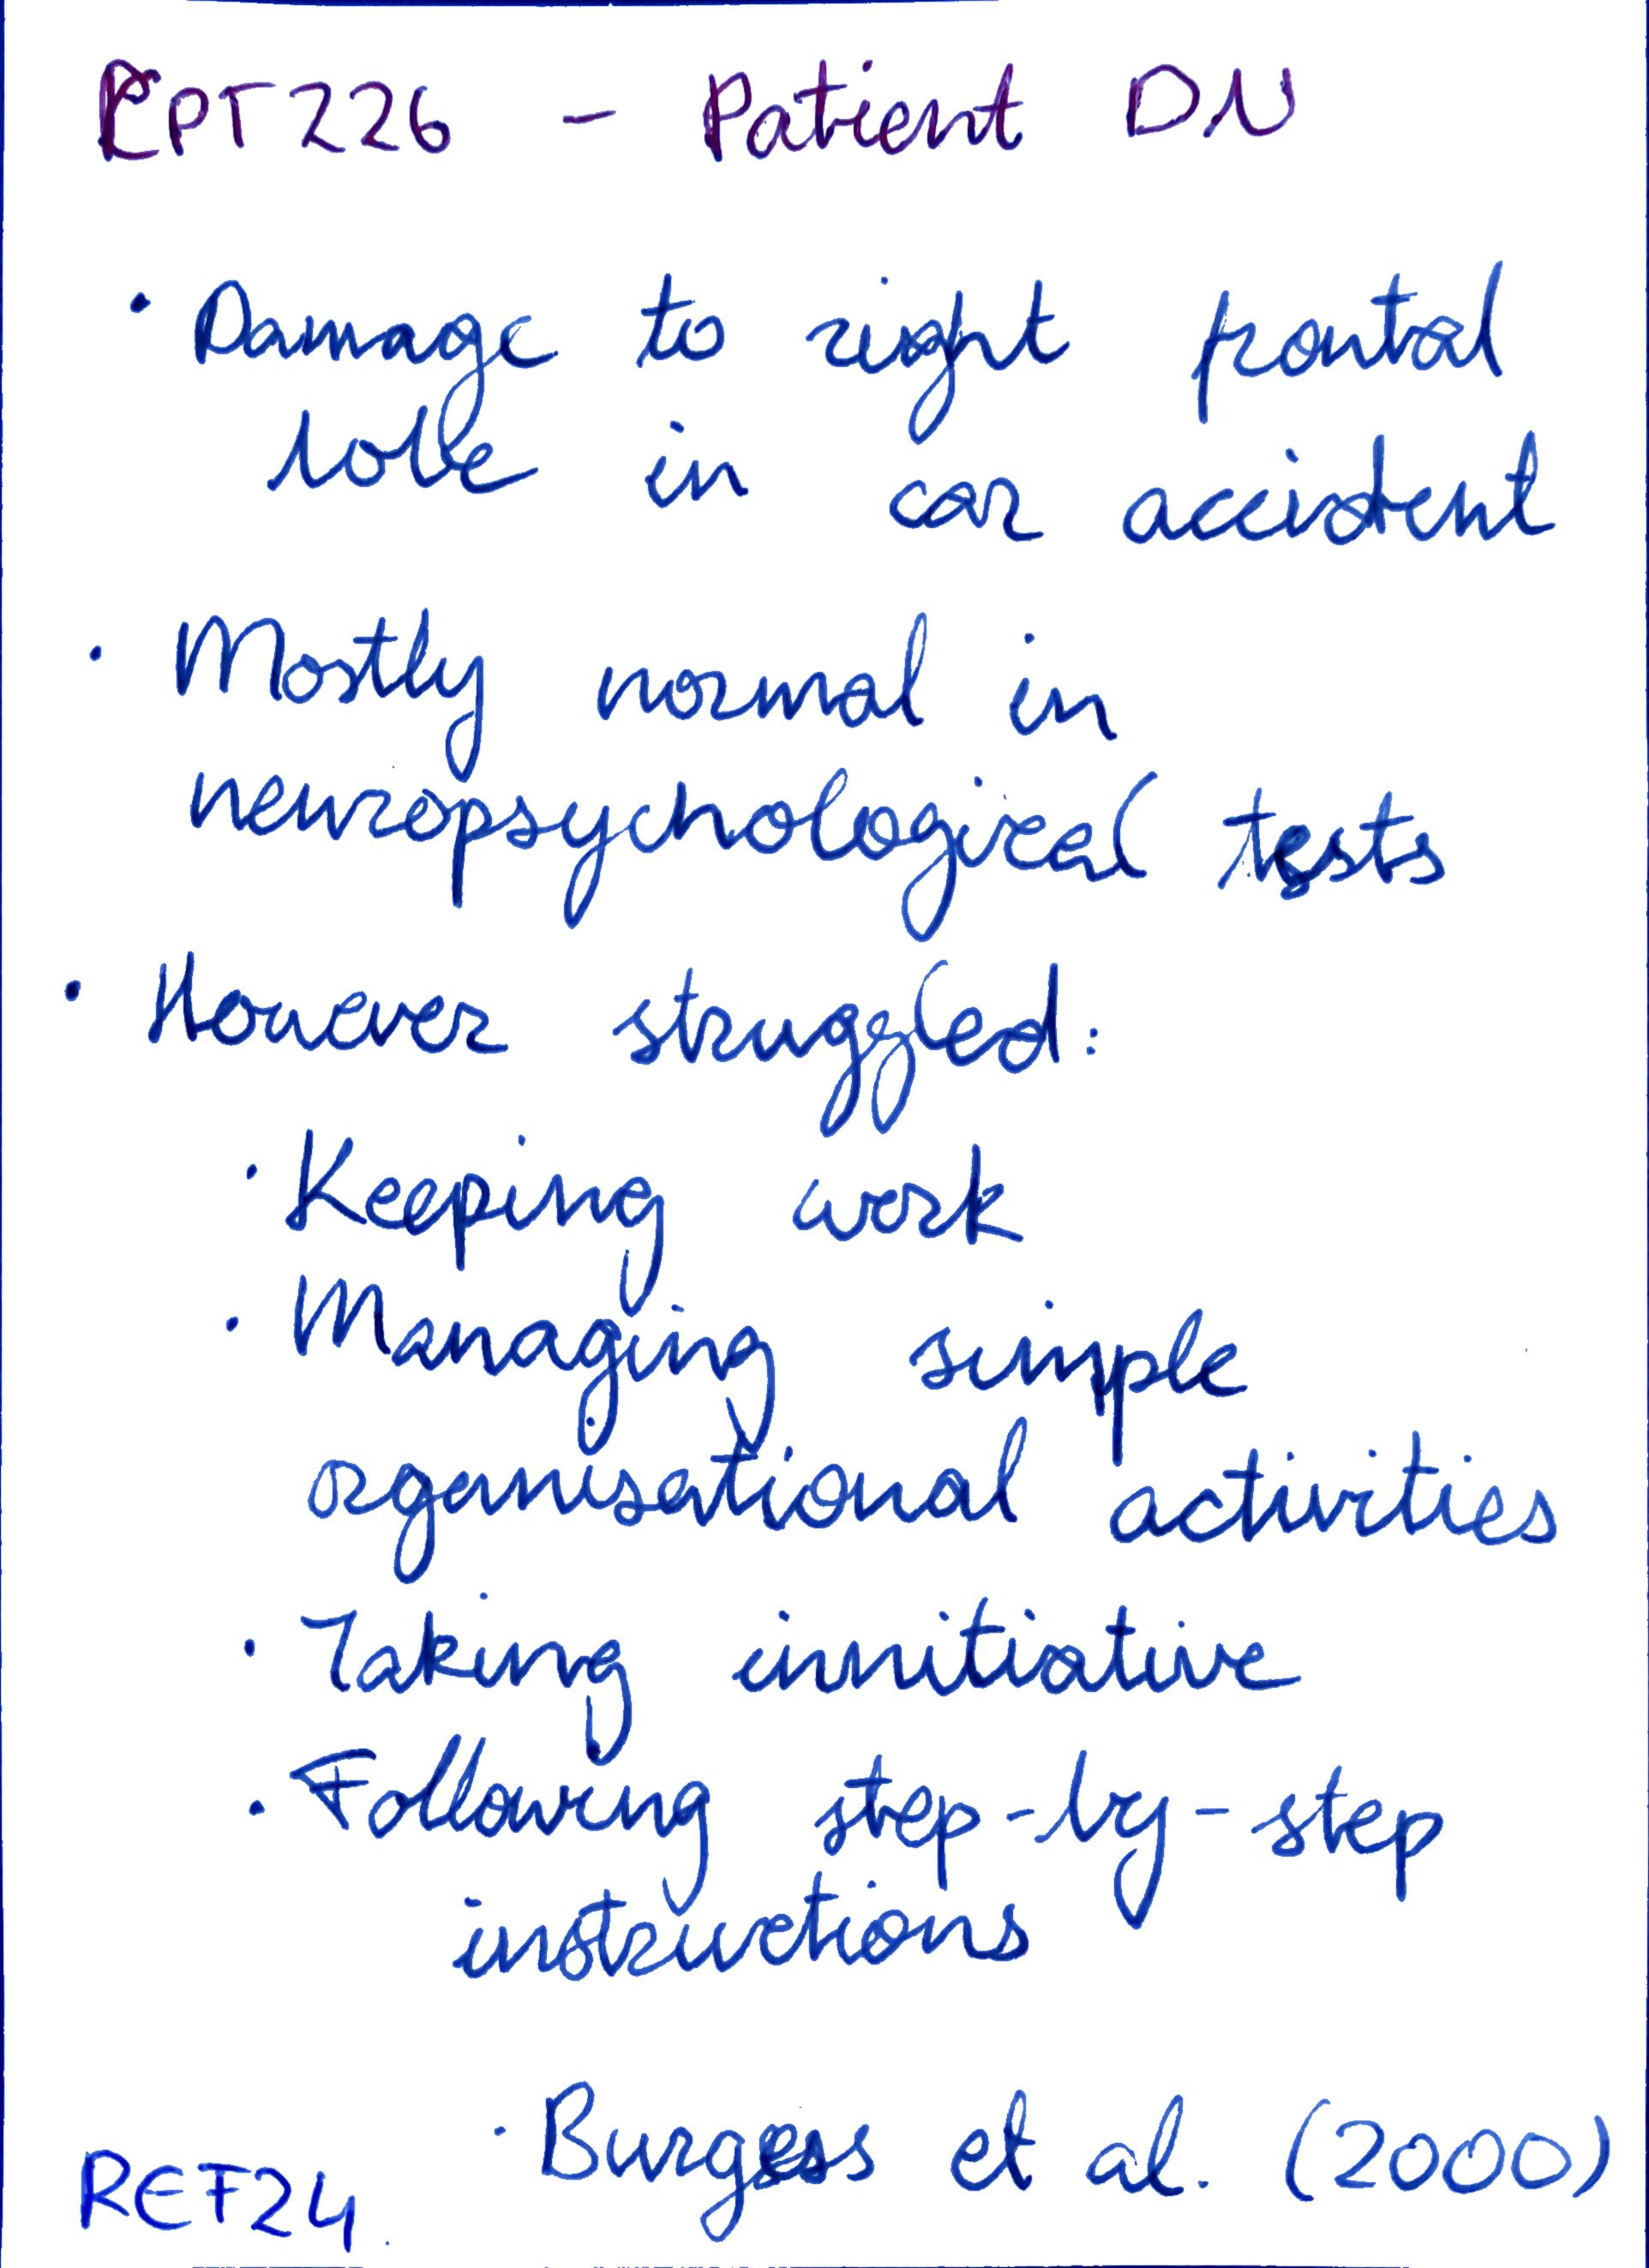 CPT226 - Patient DN
· Damage to right frontal
lobe in car accident
· Mostly normal in
neuropsychological tests
· However struggled:
· Keeping work
· Managing simple
organisational activities
· Taking innitiative
· Following step-by-step
instructions
· Burgess et al. (2000)
REF24